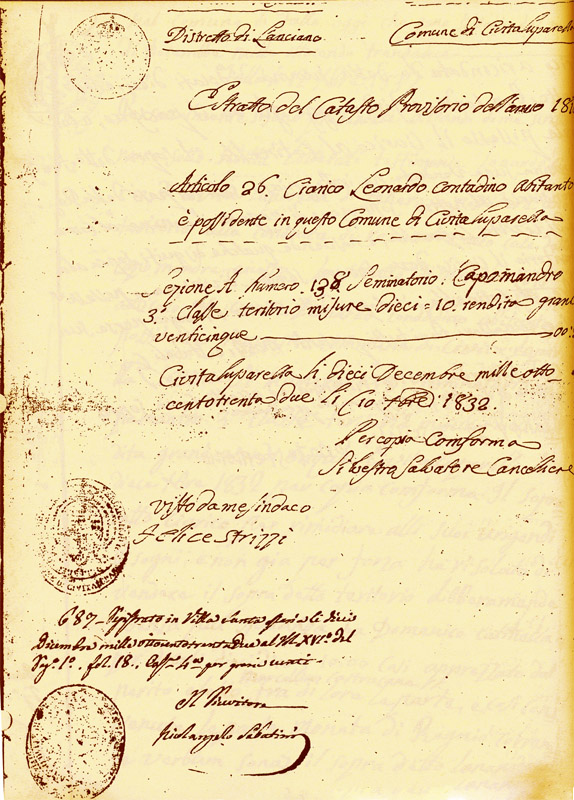 Distretto di Lanciano Comune di Civitaluparella
Estratto del Catasto Provisorio dell'anno 18
Articolo 26 Cianco Leonardo contadino abitante
è possidente in questo Comune di Civitaluparella
Sezione A numero 138 Seminatorio: Capo mandro
3ª Classe teritorio misure dieci = 10. rendita grani
venticinque 00:
Civitaluparella li dieci Decembre mille otto
cento trenta due li (10 Xbre) 1832
Per copia comforma
Silvestro Salvatore Cancelliere
Visto da me sindaco
Felice Strizzi
687. Registrato in Villa Santa Maria li dieci
Dicembre mille ottocento trentadue al
fol. 18. per grani venti
Il Ricevitore
Michelangelo Sabatini